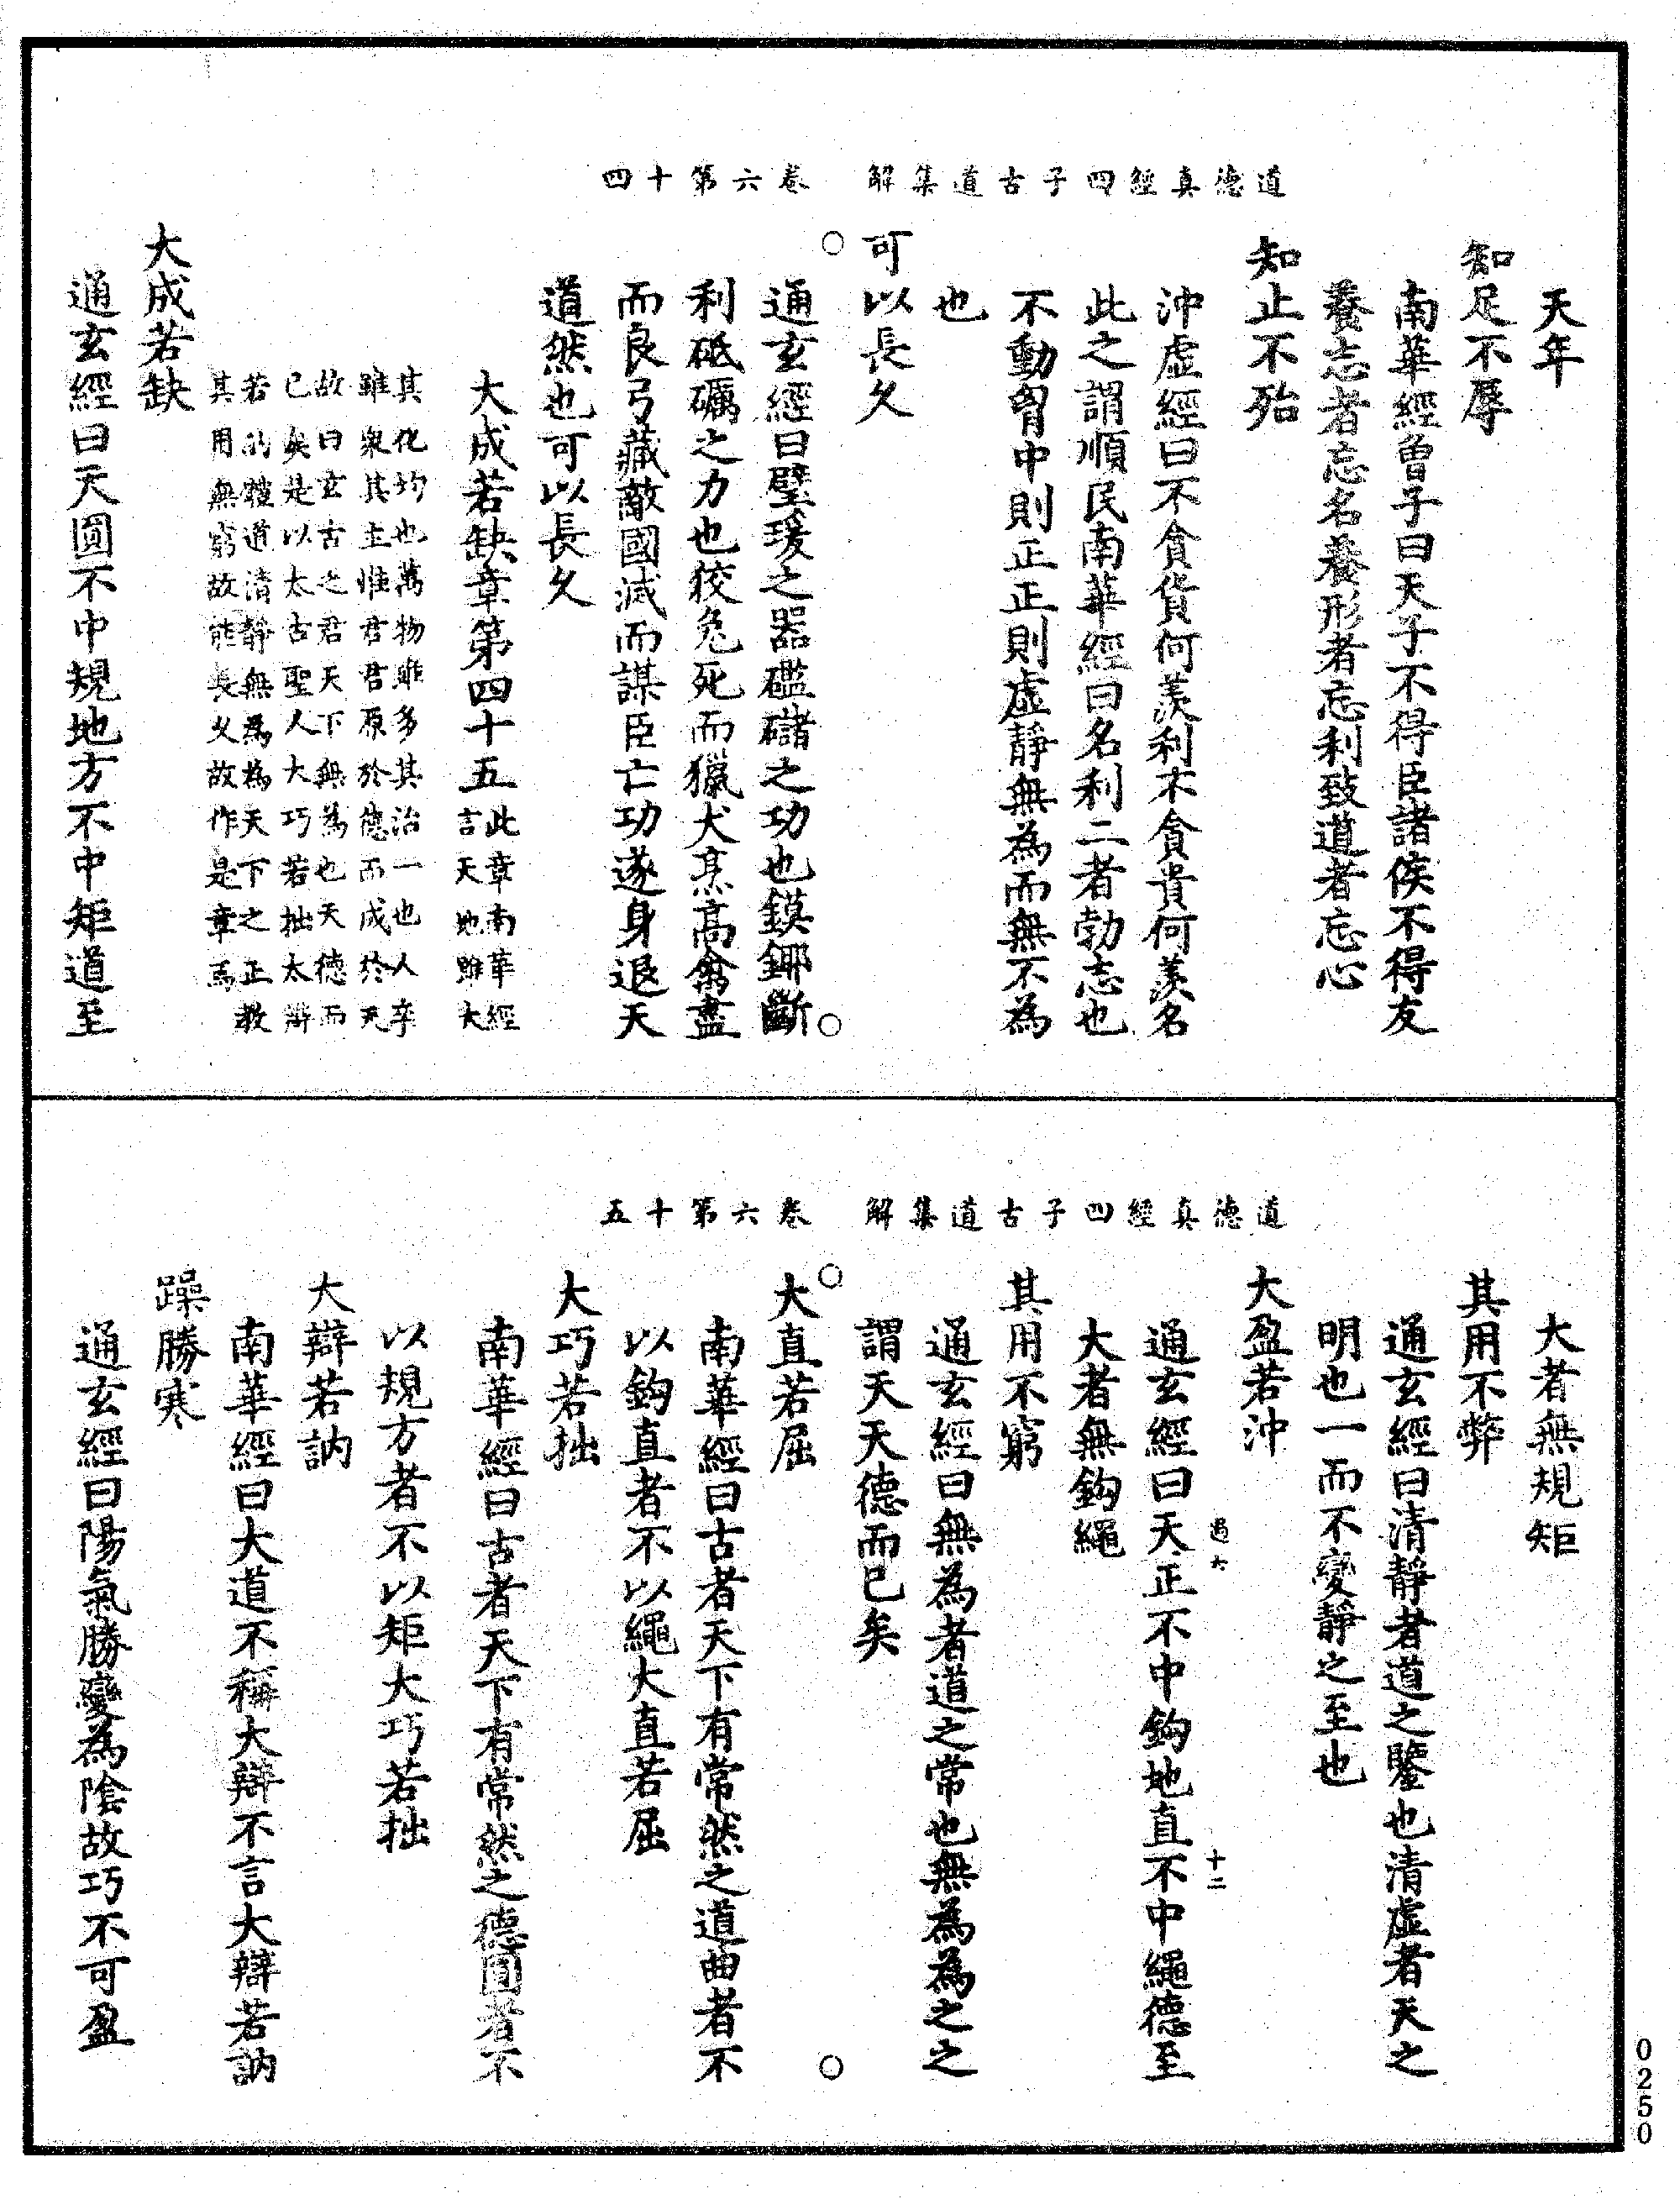 道德真經四子古道集解　卷六第十四
天年
知足不辱
南華經曾子曰天子不得臣諸侯不得友
養志者忘名養形者忘利致道者忘心
知止不殆
沖虛經曰不貪貨何羨利不貪貴何羨名
此之謂順民南華經曰名利二者勃志也
不動胷中則正正則虛靜無為而無不為
也
可以長久
通玄經曰璧瑗之器礛䃴之功也鏌鎁斷
利砥礪之力也狡兔死而獵犬烹高禽盡
而良弓藏敵國滅而謀臣亡功遂身退天
道然也可以長久
大成若缺章第四十五此章南華經
言天地雖大
其化均也萬物雖多其治一也人卒
雖衆其主惟君君原於德而成於天
故曰玄古之君天下無為也天德而
已矣是以太古聖人大巧若拙大辯
若訥體道清靜無為為天下之正教
其用無窮故能長久故作是章焉
大成若缺
通玄經曰天圓不中規地方不中矩道至
道德真經四子古道集解　卷六第十五
大者無規矩
其用不弊
通玄經曰清靜者道之鑒也清虛者天之
明也一而不變靜之至也
大盈若沖
過六　十二
通玄經曰天正不中鈎地直不中繩德至
大者無鈎繩
其用不窮
通玄經曰無為者道之常也無為為之之
謂天天德而已矣
大直若屈
南華經曰古者天下有常然之道曲者不
以鈎直者不以繩大直若屈
大巧若拙
南華經曰古者天下有常然之德圓者不
以規方者不以矩大巧若拙
大辯若訥
南華經曰大道不稱大辯不言大辯若訥
躁勝寒
通玄經曰陽氣勝變為陰故巧不可盈
0250